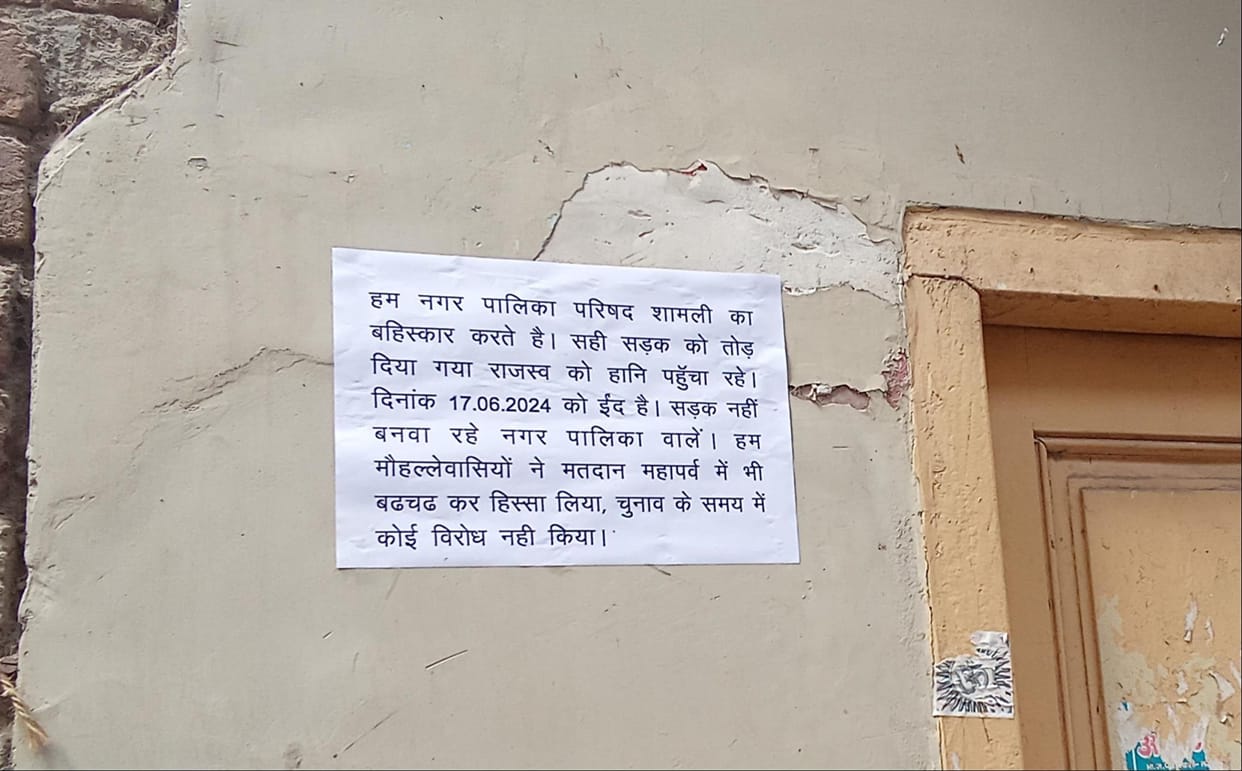 हम नगर पालिका परिषद शामली का
बहिस्कार करते है। सही सड़क को तोड़
दिया गया राजस्व को हानि पहुँचा रहे।
दिनांक 17.06.2024 को ईद है। सड़क नहीं
बनवा रहे नगर पालिका वालें। हम
मौहल्लेवासियों ने मतदान महापर्व में भी
बढचढ कर हिस्सा लिया, चुनाव के समय में
कोई विरोध नही किया।